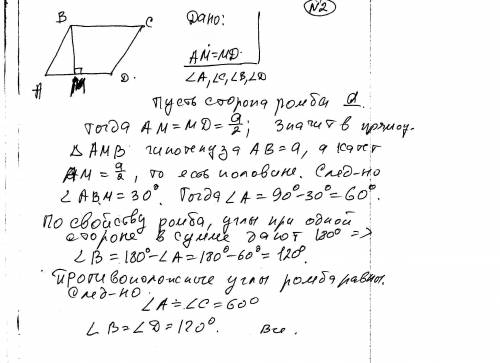 N2
B
C
Дано:
AM=MD.
∠A,∠C,∠B,∠D
A
M
D.
Пусть сторона ромба a.
Тогда AM=MD=a/2; Значит в прямоу.
Δ AMB гипотенуза AB=a, а катет
AM=a/2, то есть половине. След-но
∠ABM=30°. Тогда ∠A=90°-30°=60°.
По свойству ромба, углы при одной
стороне в сумме дают 180° =>
∠B=180°-∠A=180°-60°=120°.
Противоположные углы ромба равны.
След-но
∠A=∠C=60°
∠B=∠D=120°. Все.